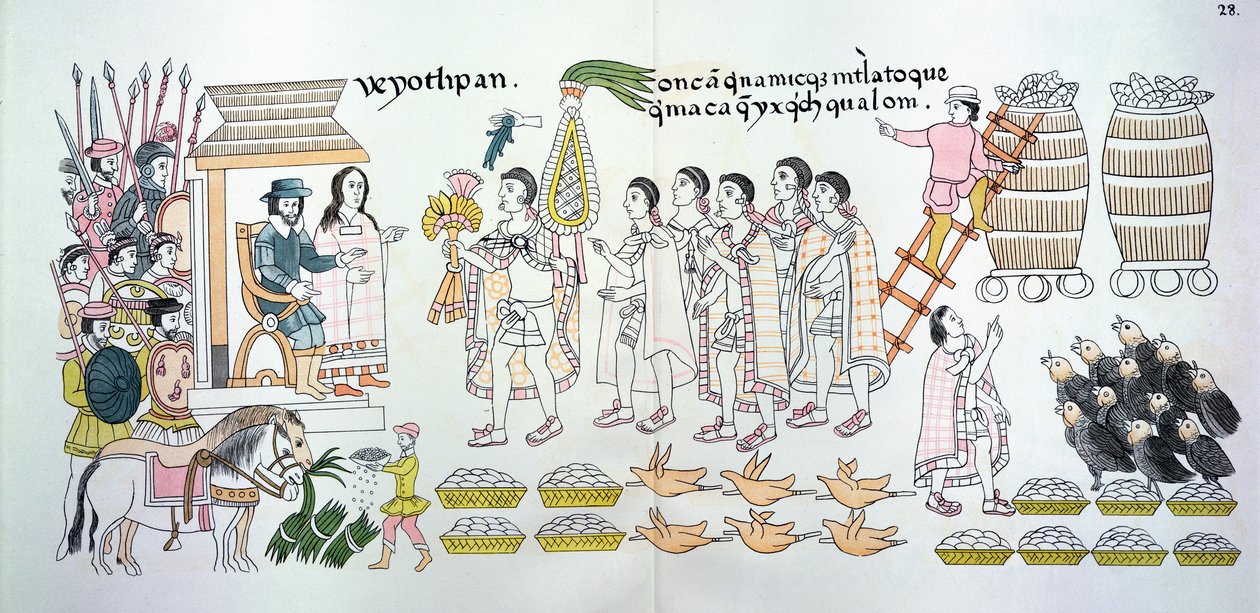 28.
veyothpan.
oncã q̃namicqȝ mtlàtoque
q̃maca q̃yxq̃ch qualom.